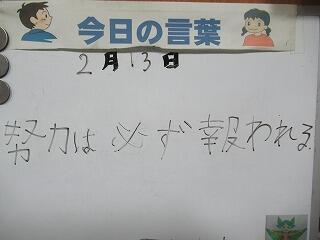 今日の言葉
2月13日
努力は必ず報われる